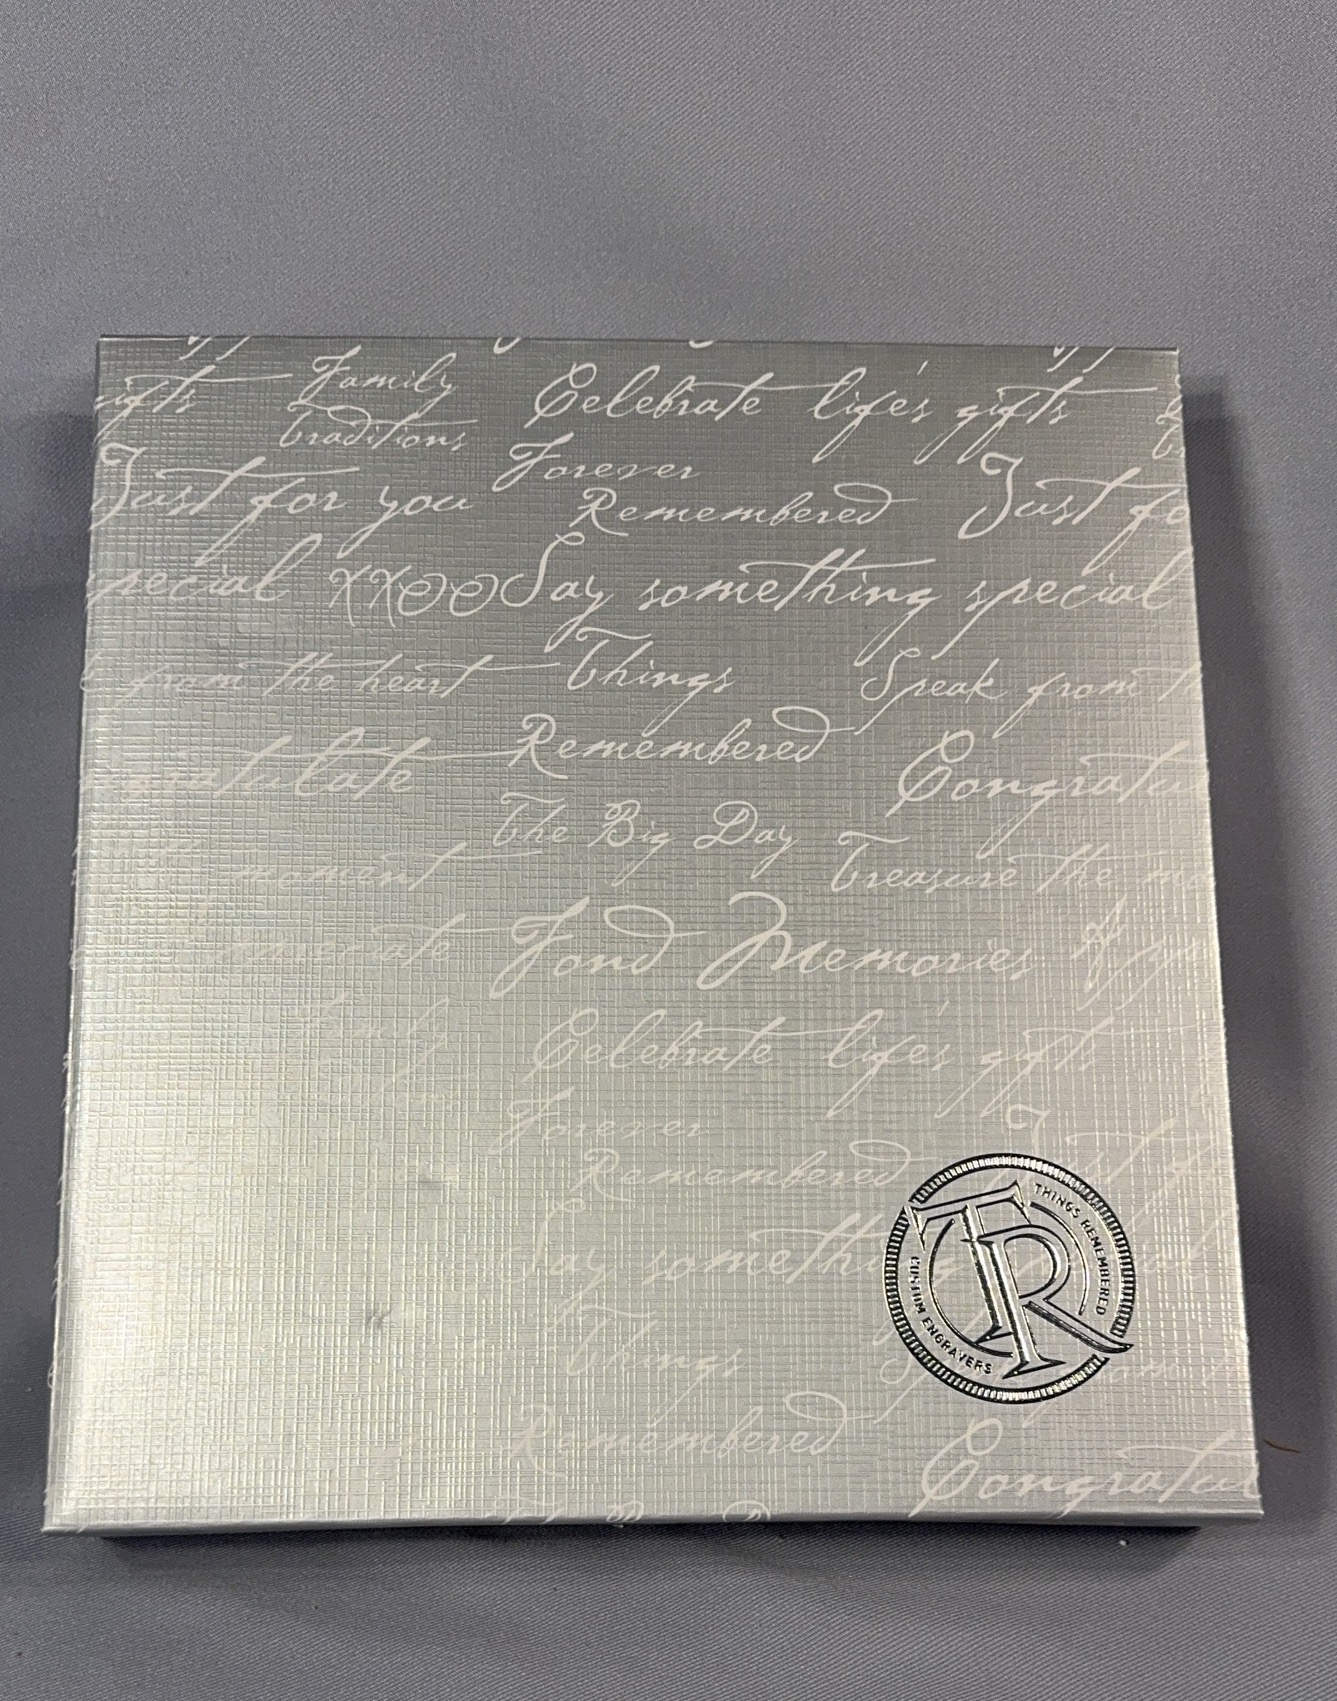 Family
gifts Celebrate life's gifts
traditions
Forever
Just for you Remembered Just fo
pecial xxoo Say something special
from the heart Things Speak from th
Remembered
gratulate Congratu
The Big Day
moment Treasure the mo
reciate Fond Memories App
Family Celebrate life's gifts
Forever
Remembered Just f
Say something
Things Sp
Remembered
Congratul
TR
THINGS REMEMBERED
CUSTOM ENGRAVERS